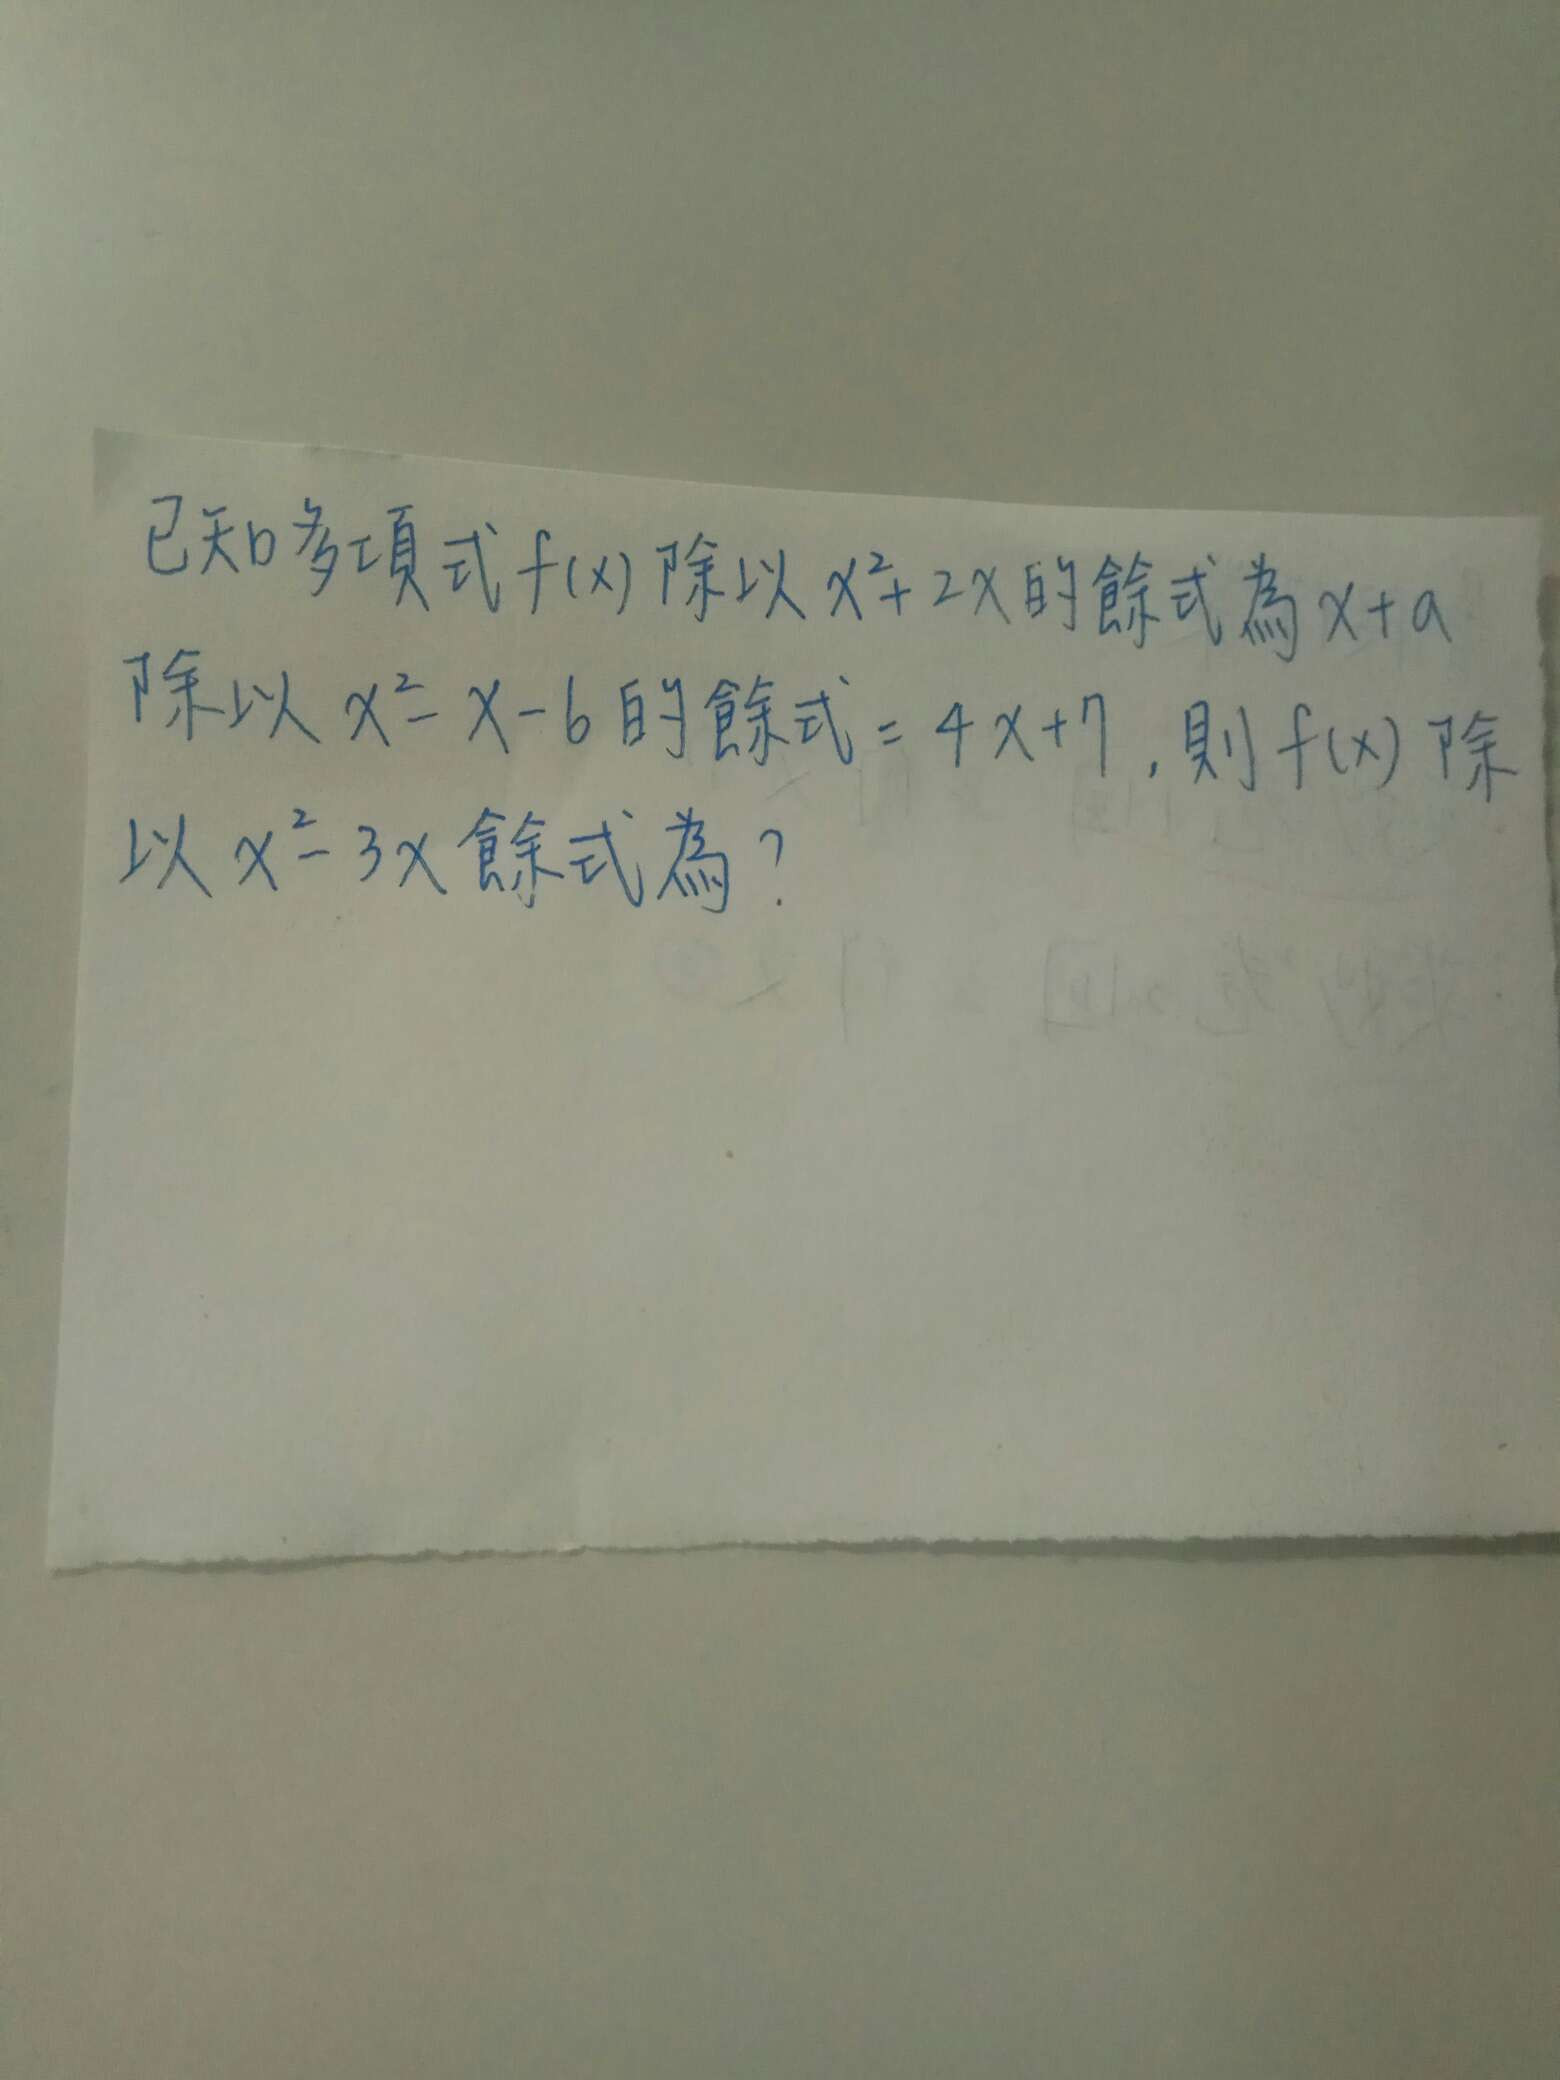 已知多項式f(x)除以x²+2x的餘式為x+a
除以x²-x-6的餘式=4x+7,則f(x)除
以x²-3x餘式為?